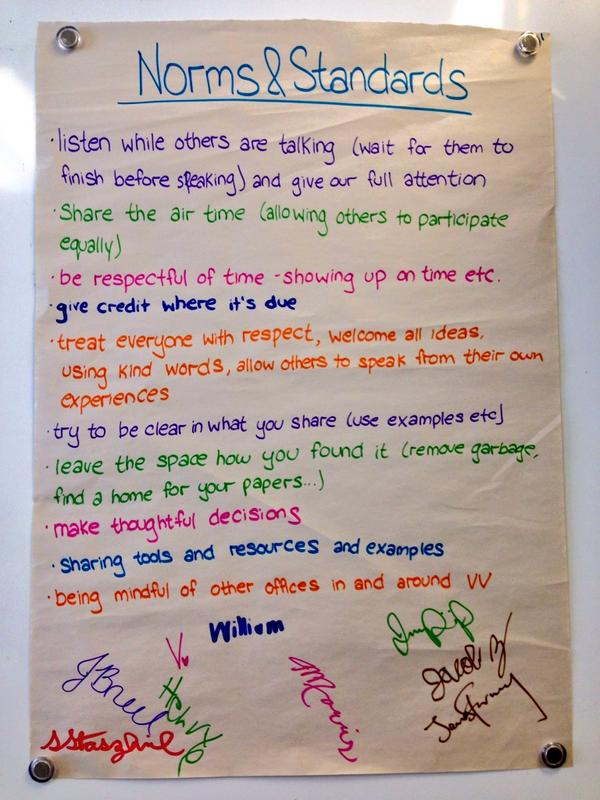 Norms & Standards
· listen while others are talking (wait for them to
finish before speaking) and give our full attention
· Share the air time (allowing others to participate
equally)
· be respectful of time - showing up on time etc.
· give credit where it's due
· treat everyone with respect, welcome all ideas,
using kind words, allow others to speak from their own
experiences
· try to be clear in what you share (use examples etc)
· leave the space how you found it (remove garbage,
find a home for your papers...)
· make thoughtful decisions
· sharing tools and resources and examples
· being mindful of other offices in and around VV
William
Jacob B